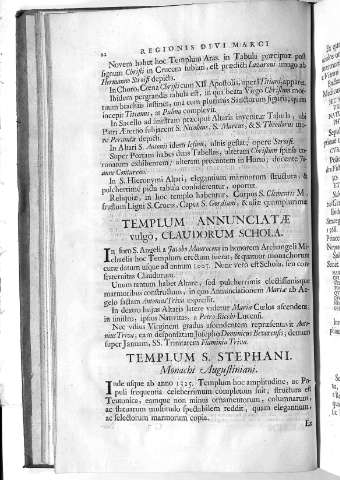 92 REGIONIS DIVI MARCI
Novem habet hoc Templum Aras. in Tabula præcipuæ post
signum Christi in Crucem sublati, est prædicti Lazaroni imago ab
Hermanno Stroiffi depicta.
In Choro, Cena Christi cum XII Apostolis, opera apparet.
Ibidem pergrandis tabula est, in qua beata Virgo Christum mortuum
brachiis sustinet, una cum plurimis Sanctorum figuris, quam
incepit Titianus, at Palma complevit.
In Sacello ad sinistram præcipui Altaris invenitur Tabula, ubi
Patri Æterno subjacent S. Nicolaus, S. Marcus, & S. Theodorus
depicta.
In Altari S. Antonii idem ipsius, ulnis gestat; opere Stroiffi.
Super Portam habes duas Tabellas, alteram Christum spinis coronatum
exhibentem; alteram precantem in Horto; docente
Contareno.
In S. Hieronymi Altari, elegantium marmorum structura, &
pulcherrime picta tabula considerentur, oportet.
Reliquiæ, in hoc templo habentur, Corpus S. Clementis M.
frustum Ligni S. Crucis, Caput S. Gordiani, & aliæ quamplurimæ
TEMPLUM ANNUNCIATÆ
vulgò, CLAUDORUM SCHOLA.
In foro S. Angeli a Jacobo Mauroceno in honorem Archangeli Michaelis
hoc Templum erectum fuerat, & quatuor monachorum
curæ datum usque ad annum 1007. Nunc verò est Schola, seu confraternitas
Claudorum.
Unum tantum habet Altare, sed pulcherrimis electissimisque
marmoribus constructum, in quo Annunciationem Mariæ ab Angelo
factam Antonius Triva expressit.
In dextro hujus Altaris latere videtur Maria Cœlos ascendens;
in sinistro, ipsius Nativitas, a Petro Riccbo Lucensi.
Nec vilius Virginem gradus ascendentem repræsentavit Antonius
Triva; eam desponsatam Josepho Dominicus Betavensis; demum
super Januam, SS. Trinitatem Flaminia Triva.
TEMPLUM S. STEPHANI.
Monachi Augustiniani.
Inde usque ab anno 1325. Templum hoc amplitudine, ac Populi
frequentia celeberrimum completum fuit, structura est
Teutonica, eamque non minus ornamentorum, columnarum,
ac statuarum multitudo spectabilem reddit, quam elegantium,
ac selectorum marmorum copia.
Ex